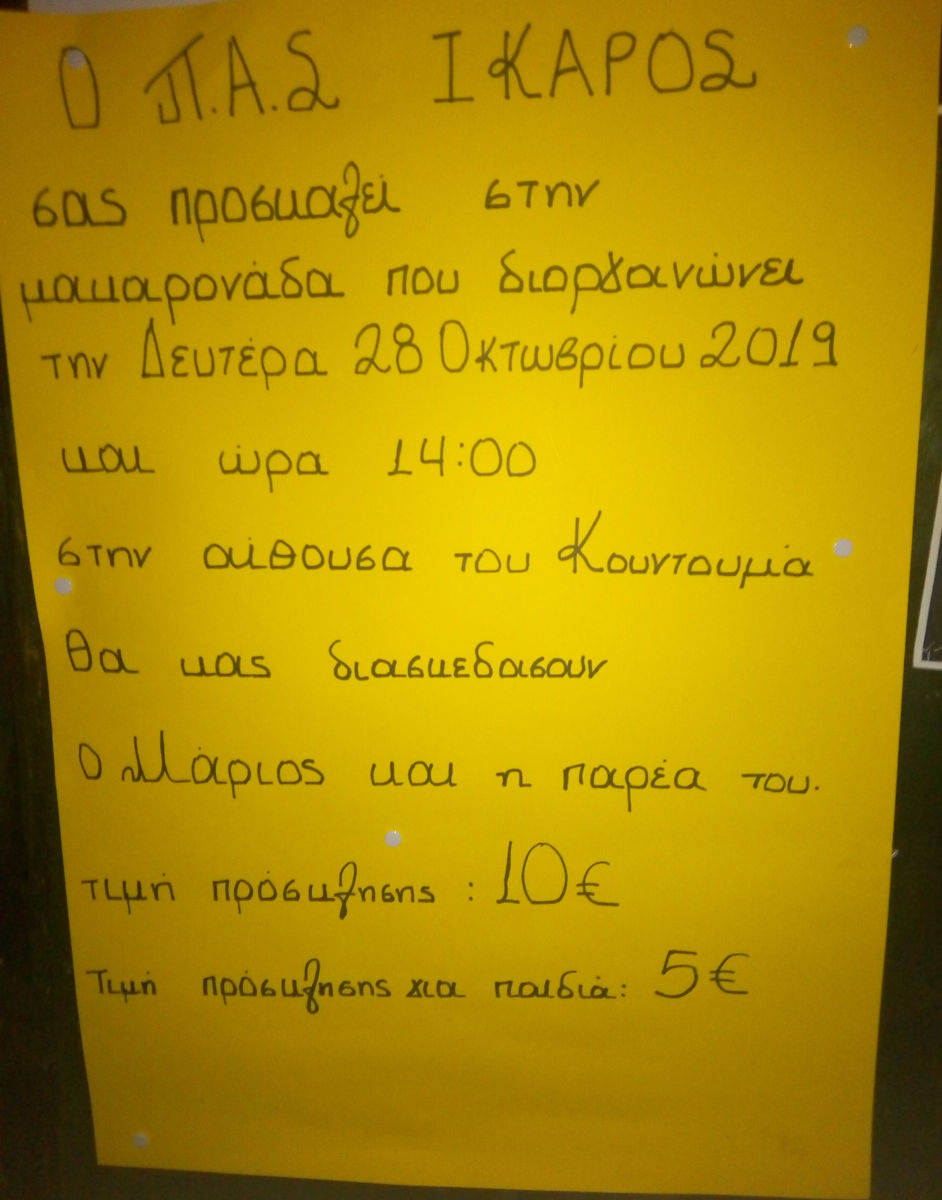 Ο Π.Α.Σ ΙΚΑΡΟΣ
σας προσκαλεί στην
μακαρονάδα που διοργανώνει
την Δευτέρα 28 Οκτωβρίου 2019
και ώρα 14:00
στην αίθουσα του Κουντουμά
θα μας διασκεδασουν
Ο Μάριος και η παρέα του.
τιμή πρόσκλησης : 10€
Τιμή πρόσκλησης για παιδιά: 5€